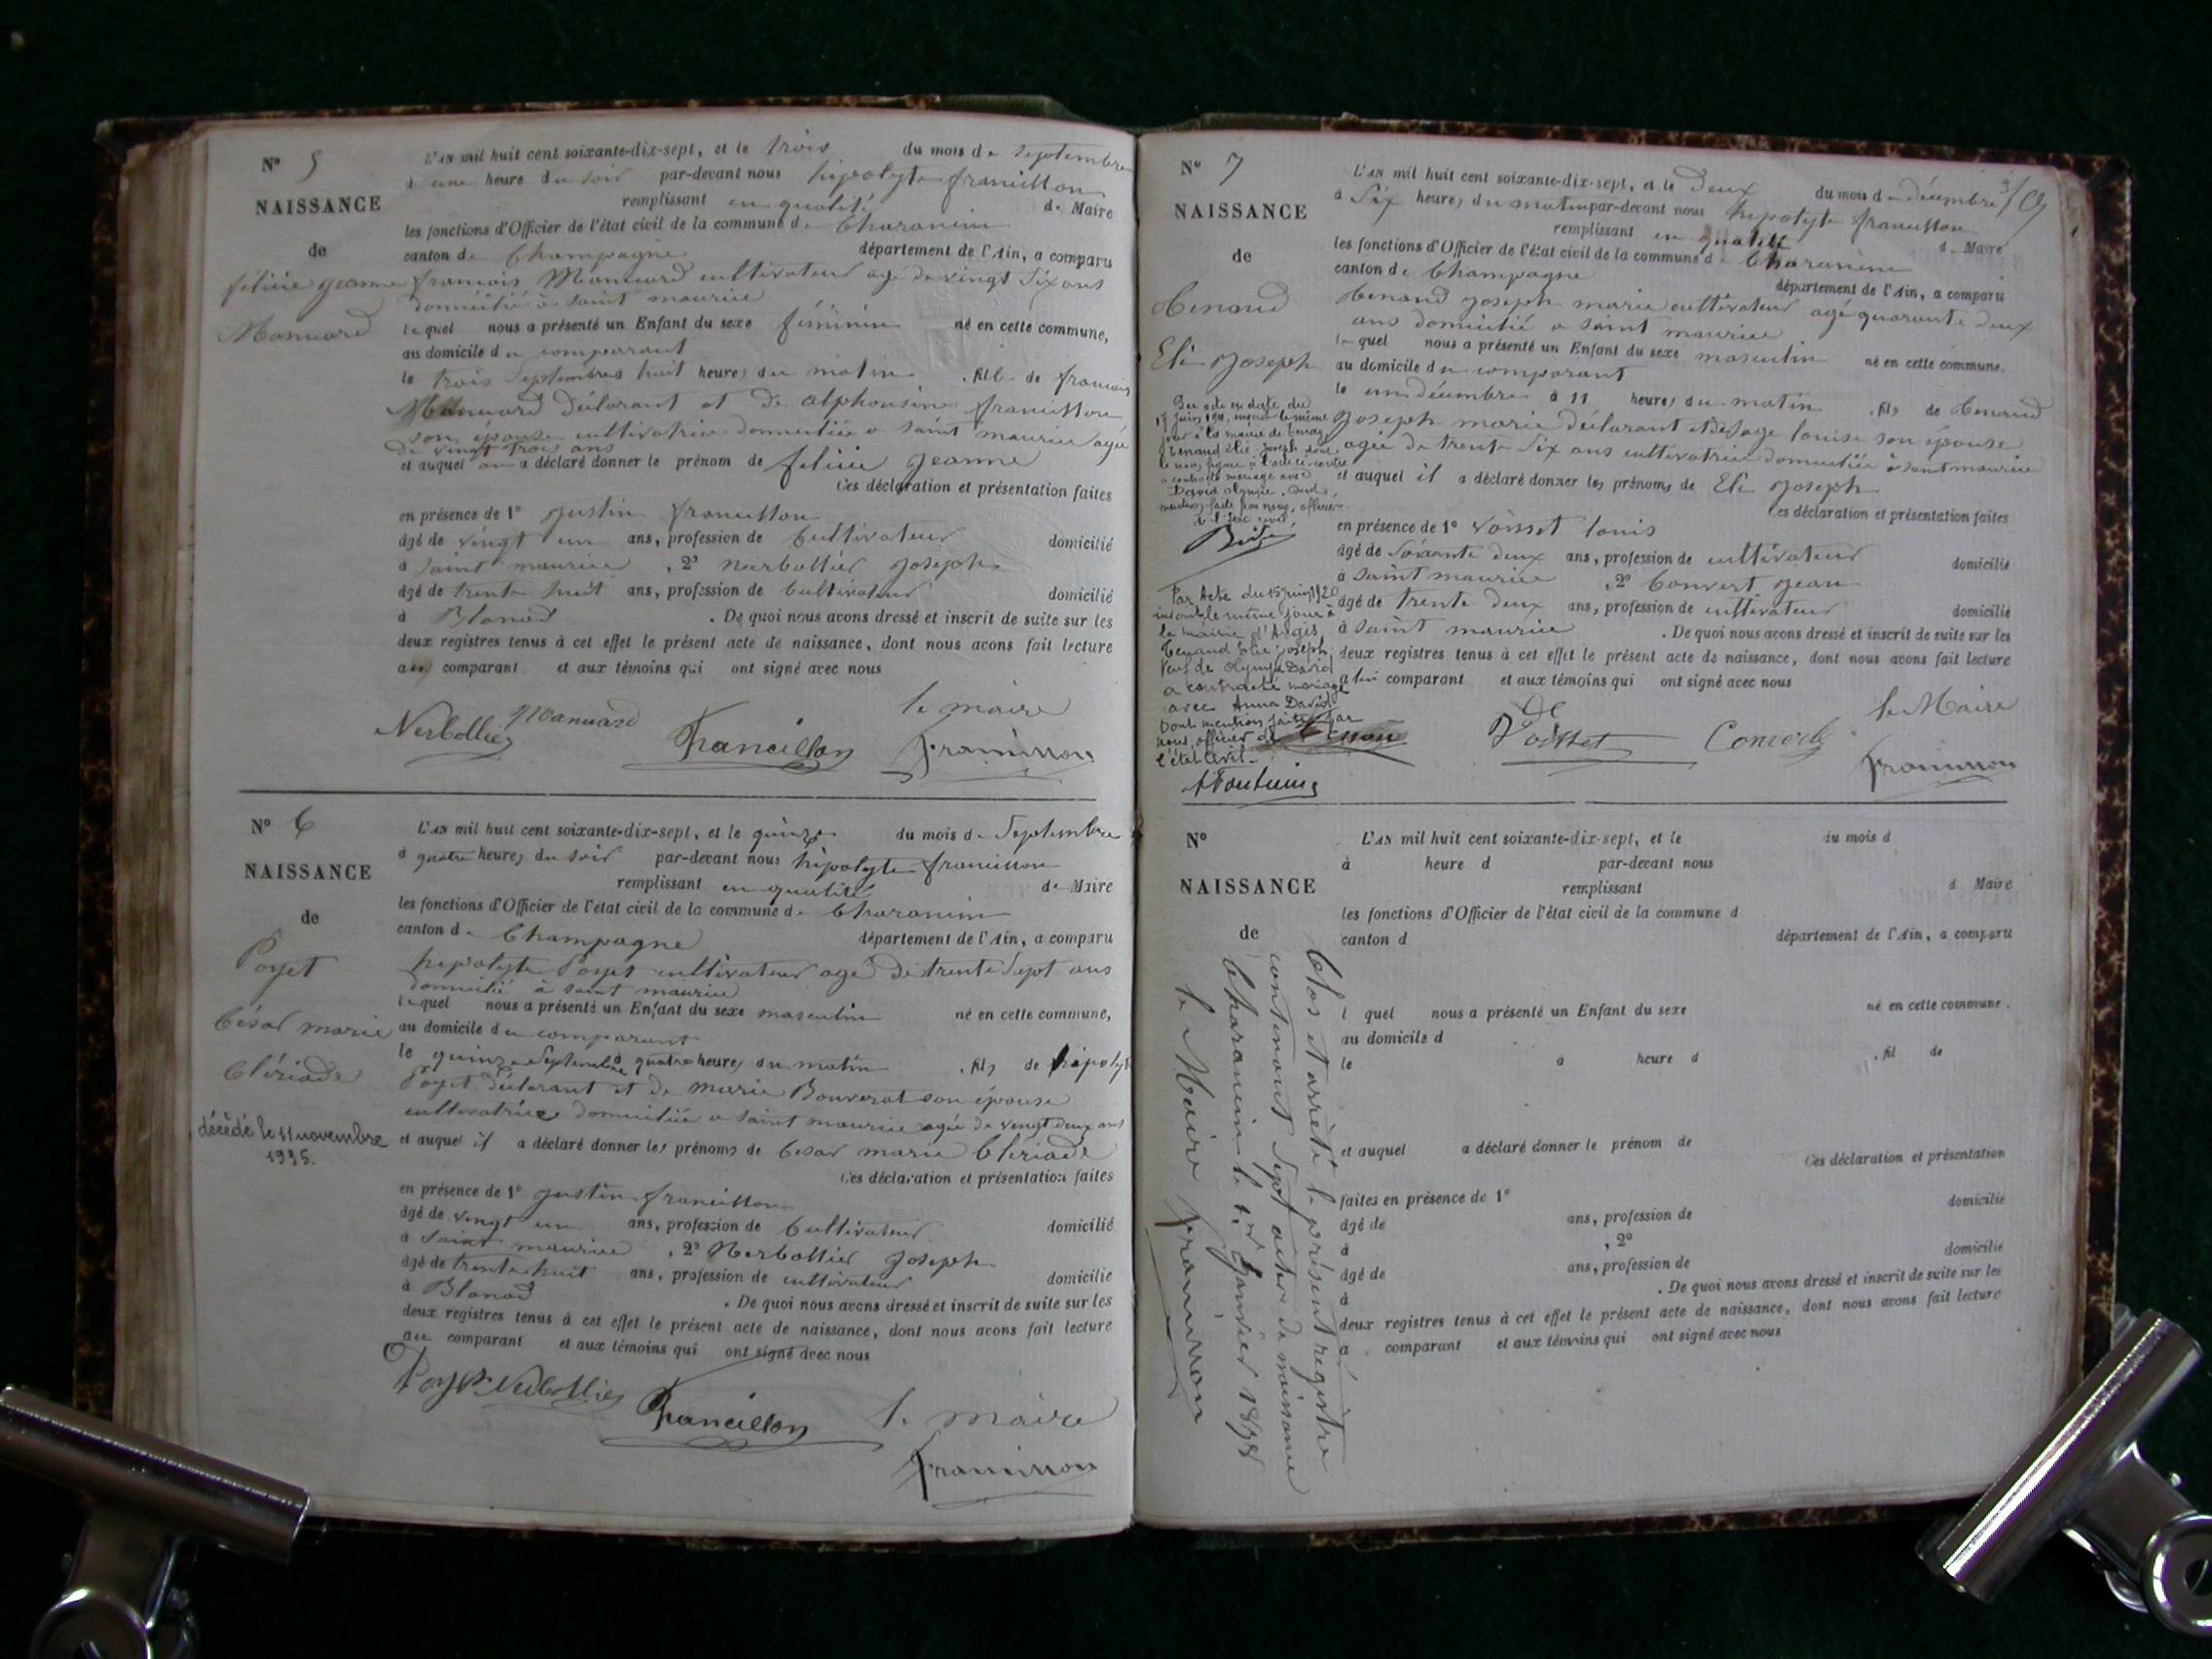 N° 5
NAISSANCE
de
félicie jeanne
Manuard
L'AN mil huit cent soixante-dix-sept, et le trois du mois de septembre
à une heure du soir par-devant nous hipolyte francillon
remplissant en qualité de Maire
les fonctions d'Officier de l'état civil de la commune de Charancin
canton de Champagne département de l'Ain, a comparu
francois Manuard cultivateur agé de vingt six ans
domicilié à saint maurice
lequel nous a présenté un Enfant du sexe féminin né en cette commune,
au domicile du comparant
le trois Septembre à huit heures du matin , fille de francois
Manuard déclarant et de alphonsine francillon
son épouse cultivatrice domiciliée a saint maurice agée
de vingt trois ans
et auquel on a déclaré donner le prénom de félicie jeanne
Ces déclaration et présentation faites
en présence de 1° justin francillon
âgé de vingt un ans, profession de Cultivateur domicilié
à saint maurice , 2° Nerbollier joseph
âgé de trente huit ans, profession de Cultivateur domicilié
à Blanad . De quoi nous avons dressé et inscrit de suite sur les
deux registres tenus à cet effet le présent acte de naissance, dont nous avons fait lecture
au comparant et aux témoins qui ont signé avec nous
Nerbollier Manuard Francillon le maire
francillon
N° 6
NAISSANCE
de
Poyet
César marie
Clériade
décédé le 11 novembre
1935.
L'AN mil huit cent soixante-dix-sept, et le quinze du mois de Septembre
à quatre heures du soir par-devant nous hipolyte francillon
remplissant en qualité de Maire
les fonctions d'Officier de l'état civil de la commune de Charancin
canton de Champagne département de l'Ain, a comparu
hipolyte Poyet cultivateur agé de trente sept ans
domicilié à saint maurice
lequel nous a présenté un Enfant du sexe masculin né en cette commune,
au domicile du comparant
le quinze Septembre à quatre heures du matin , fils de hipolyte
Poyet déclarant et de marie Bouverat son épouse
cultivatrice domiciliée a saint maurice agée de vingt deux ans
et auquel il a déclaré donner les prénoms de César marie Clériade
Ces déclaration et présentation faites
en présence de 1° justin francillon
âgé de vingt un ans, profession de Cultivateur domicilié
à saint maurice , 2° Nerbollier joseph
âgé de trente huit ans, profession de cultivateur domicilié
à Blanad . De quoi nous avons dressé et inscrit de suite sur les
deux registres tenus à cet effet le présent acte de naissance, dont nous avons fait lecture
au comparant et aux témoins qui ont signé avec nous
Poyet Nerbollier Francillon le maire
francillon
N° 7
NAISSANCE
de
Tenand
Elie Joseph
Par acte en date du
17 juin 1911, inscrit le même
jour à la mairie de
Tenand Elie Joseph dont
le nom figure à l'acte ci-contre
a contracté mariage avec
David Olympe, dont
mention faite par nous, officier
de l'état civil
Par Acte du 15 juin 1920
inscrit le même jour à
la mairie d'Angis
Tenand Elie Joseph,
veuf de Olympe David
a contracté mariage
avec Anna David
Dont mention faite par
nous officier de
l'état civil.
L'AN mil huit cent soixante-dix-sept, et le Deux du mois de décembre
à Six heures du matin par-devant nous hipolyte francillon
remplissant en qualité de Maire
les fonctions d'Officier de l'état civil de la commune de Charancin
canton de Champagne département de l'Ain, a comparu
Tenand joseph marie cultivateur agé quarante deux
ans domicilié a saint maurice
lequel nous a présenté un Enfant du sexe masculin né en cette commune.
au domicile du comparant
le un décembre à 11 heures du matin , fils de Tenand
Joseph marie déclarant et de louise son épouse
agée de trente Six ans cultivatrice domiciliée à saint maurice
et auquel il a déclaré donner les prénoms de Elie Joseph
Ces déclaration et présentation faites
en présence de 1° Voisset louis
âgé de soixante deux ans, profession de cultivateur domicilié
à saint maurice , 2° Convert jean
âgé de trente deux ans, profession de cultivateur domicilié
à saint maurice . De quoi nous avons dressé et inscrit de suite sur les
deux registres tenus à cet effet le présent acte de naissance, dont nous avons fait lecture
à lui comparant et aux témoins qui ont signé avec nous
Voisset Convert le Maire
francillon
N°
NAISSANCE
de
L'AN mil huit cent soixante-dix-sept, et le du mois d
à heure d par-devant nous
remplissant d Maire
les fonctions d'Officier de l'état civil de la commune d
canton d département de l'Ain, a comparu
l quel nous a présenté un Enfant du sexe né en cette commune.
au domicile d
le à heure d , fil de
et auquel a déclaré donner le prénom de
Ces déclaration et présentation
faites en présence de 1° domicilié
âgé de ans, profession de
à , 2° domicilié
âgé de ans, profession de
à . De quoi nous avons dressé et inscrit de suite sur les
deux registres tenus à cet effet le présent acte de naissance, dont nous avons fait lecture
à comparant et aux témoins qui ont signé avec nous
Clos et arrêté le présent registre
contenant Sept actes de naissance
Charancin le 1er Janvier 1878
le Maire francillon